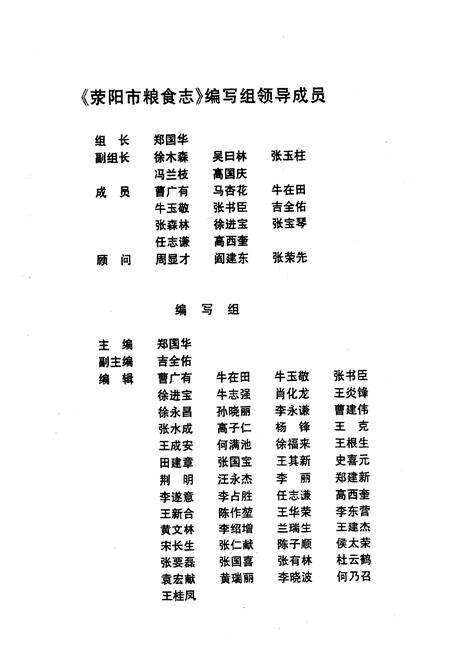 《荥阳市粮食志》编写组领导成员
组 长 郑国华
副组长 徐木森 吴曰林 张玉柱
冯兰枝 高国庆
成 员 曹广有 马杏花 牛在田
牛玉敬 张书臣 吉全佑
张森林 徐进宝 张宝琴
任志谦 高西奎
顾 问 周显才 阎建东 张荣先
编 写 组
主 编 郑国华
副主编 吉全佑
编 辑 曹广有 牛在田 牛玉敬 张书臣
徐进宝 牛志强 肖化龙 王炎锋
徐永昌 孙晓丽 李永谦 曹建伟
张水成 高子仁 杨 锋 王 克
王成安 何满池 徐福来 王根生
田建章 张国宝 王其新 史喜元
荆 明 汪永杰 李 丽 郑建新
李遂意 李占胜 任志谦 高西奎
王新合 陈作堃 王华荣 李东营
黄文林 李绍增 兰瑞生 王建杰
宋长生 张仁献 陈子顺 侯太荣
张要磊 张国喜 张有林 杜云鹤
袁宏献 黄瑞丽 李晓波 何乃召
王桂凤